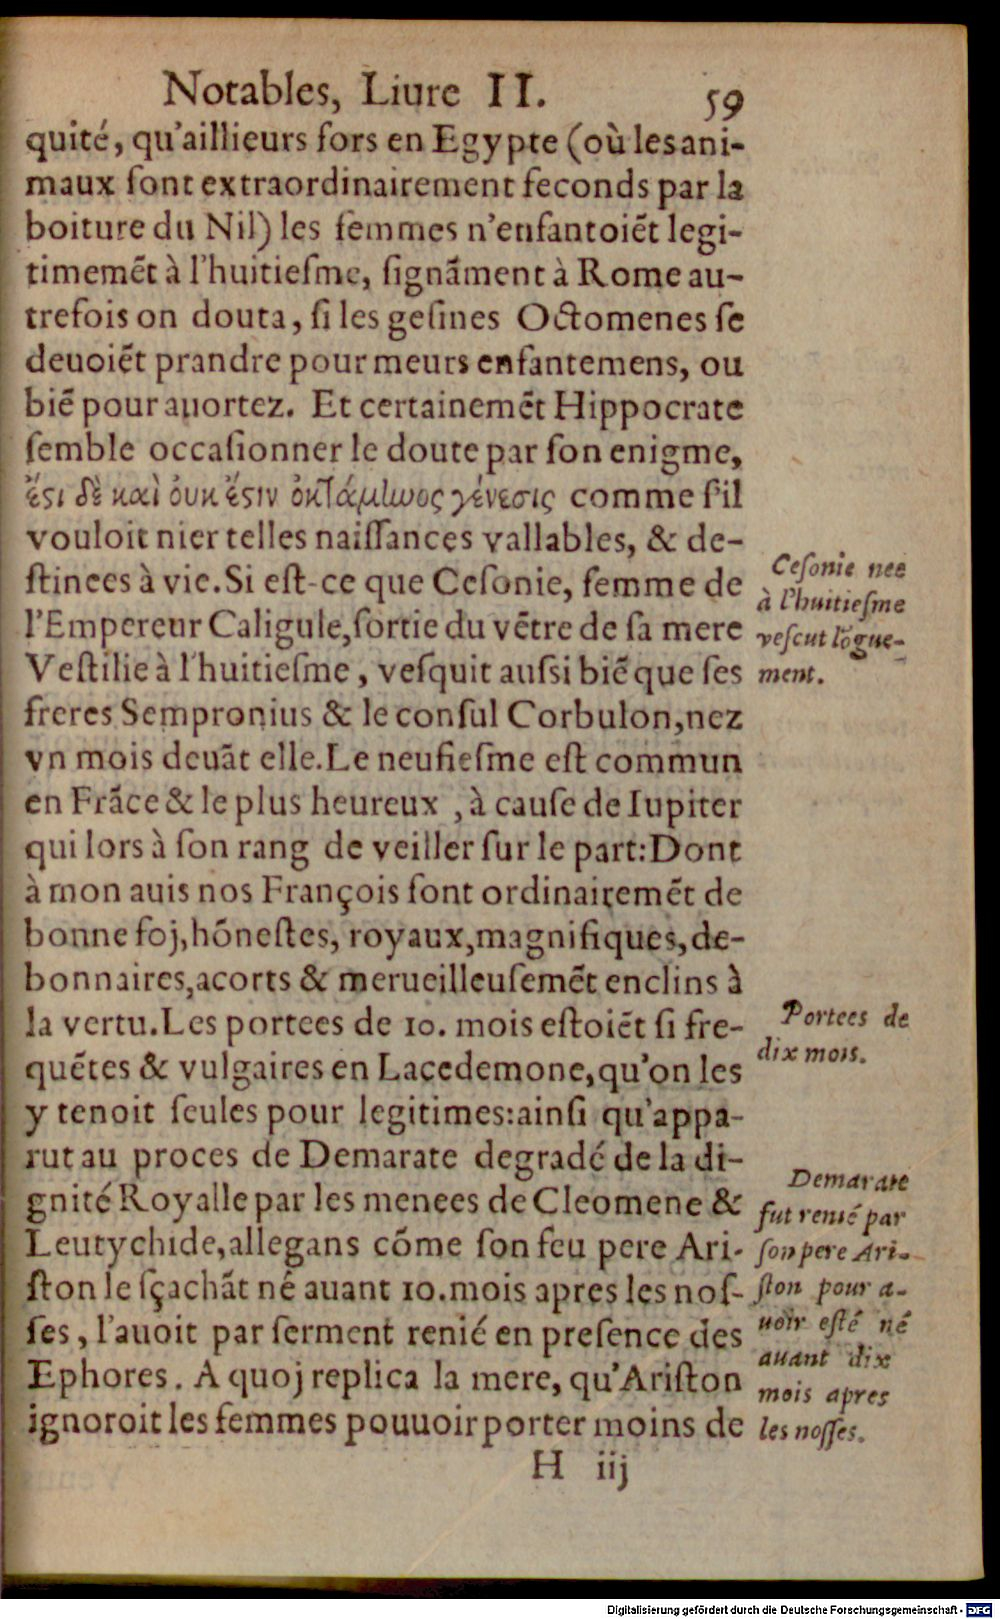 Notables, Liure II. 59
quité, qu'aillieurs fors en Egypte (où les ani-
maux ſont extraordinairement feconds par la
boiture du Nil) les femmes n'enfantoiẽt legi-
timemẽt à l'huitieſme, ſignãment à Rome au-
trefois on douta, ſi les geſines Octomenes ſe
deuoiẽt prandre pour meurs enfantemens, ou
biẽ pour auortez. Et certainemẽt Hippocrate
ſemble occaſionner le doute par ſon enigme,
ἔϛι δὲ καὶ ὀυκ ἔϛιν ὀκτάμηνος γένεσις comme ſ'il
vouloit nier telles naiſſances vallables, & de-
ſtinees à vie. Si eſt-ce que Ceſonie, femme de
l'Empereur Caligule, ſortie du vẽtre de ſa mere
Veſtilie à l'huitieſme, veſquit auſsi biẽ que ſes
freres Sempronius & le conſul Corbulon, nez
vn mois deuãt elle. Le neufieſme eſt commun
en Frãce & le plus heureux, à cauſe de Iupiter
qui lors à ſon rang de veiller ſur le part: Dont
à mon auis nos François ſont ordinairemẽt de
bonne foj, hõneſtes, royaux, magnifiques, de-
bonnaires, acorts & merueilleuſemẽt enclins à
la vertu. Les portees de 10. mois eſtoiẽt ſi fre-
quẽtes & vulgaires en Lacedemone, qu'on les
y tenoit ſeules pour legitimes: ainſi qu'appa-
rut au proces de Demarate degradé de la di-
gnité Royalle par les menees de Cleomene &
Leutychide, allegans cõme ſon feu pere Ari-
ſton le ſçachãt né auant 10. mois apres les noſ-
ſes, l'auoit par ſerment renié en preſence des
Ephores. A quoj replica la mere, qu'Ariſton
ignoroit les femmes pouuoir porter moins de
H iij
Ceſonie nee
à l'huitieſme
veſcut lõgue-
ment.
Portees de
dix mois.
Demarate
fut renié par
ſon pere Ari-
ſton pour a-
uoir eſté né
auant dix
mois apres
les noſſes.
Digitalisierung gefördert durch die Deutsche Forschungsgemeinschaft - DFG